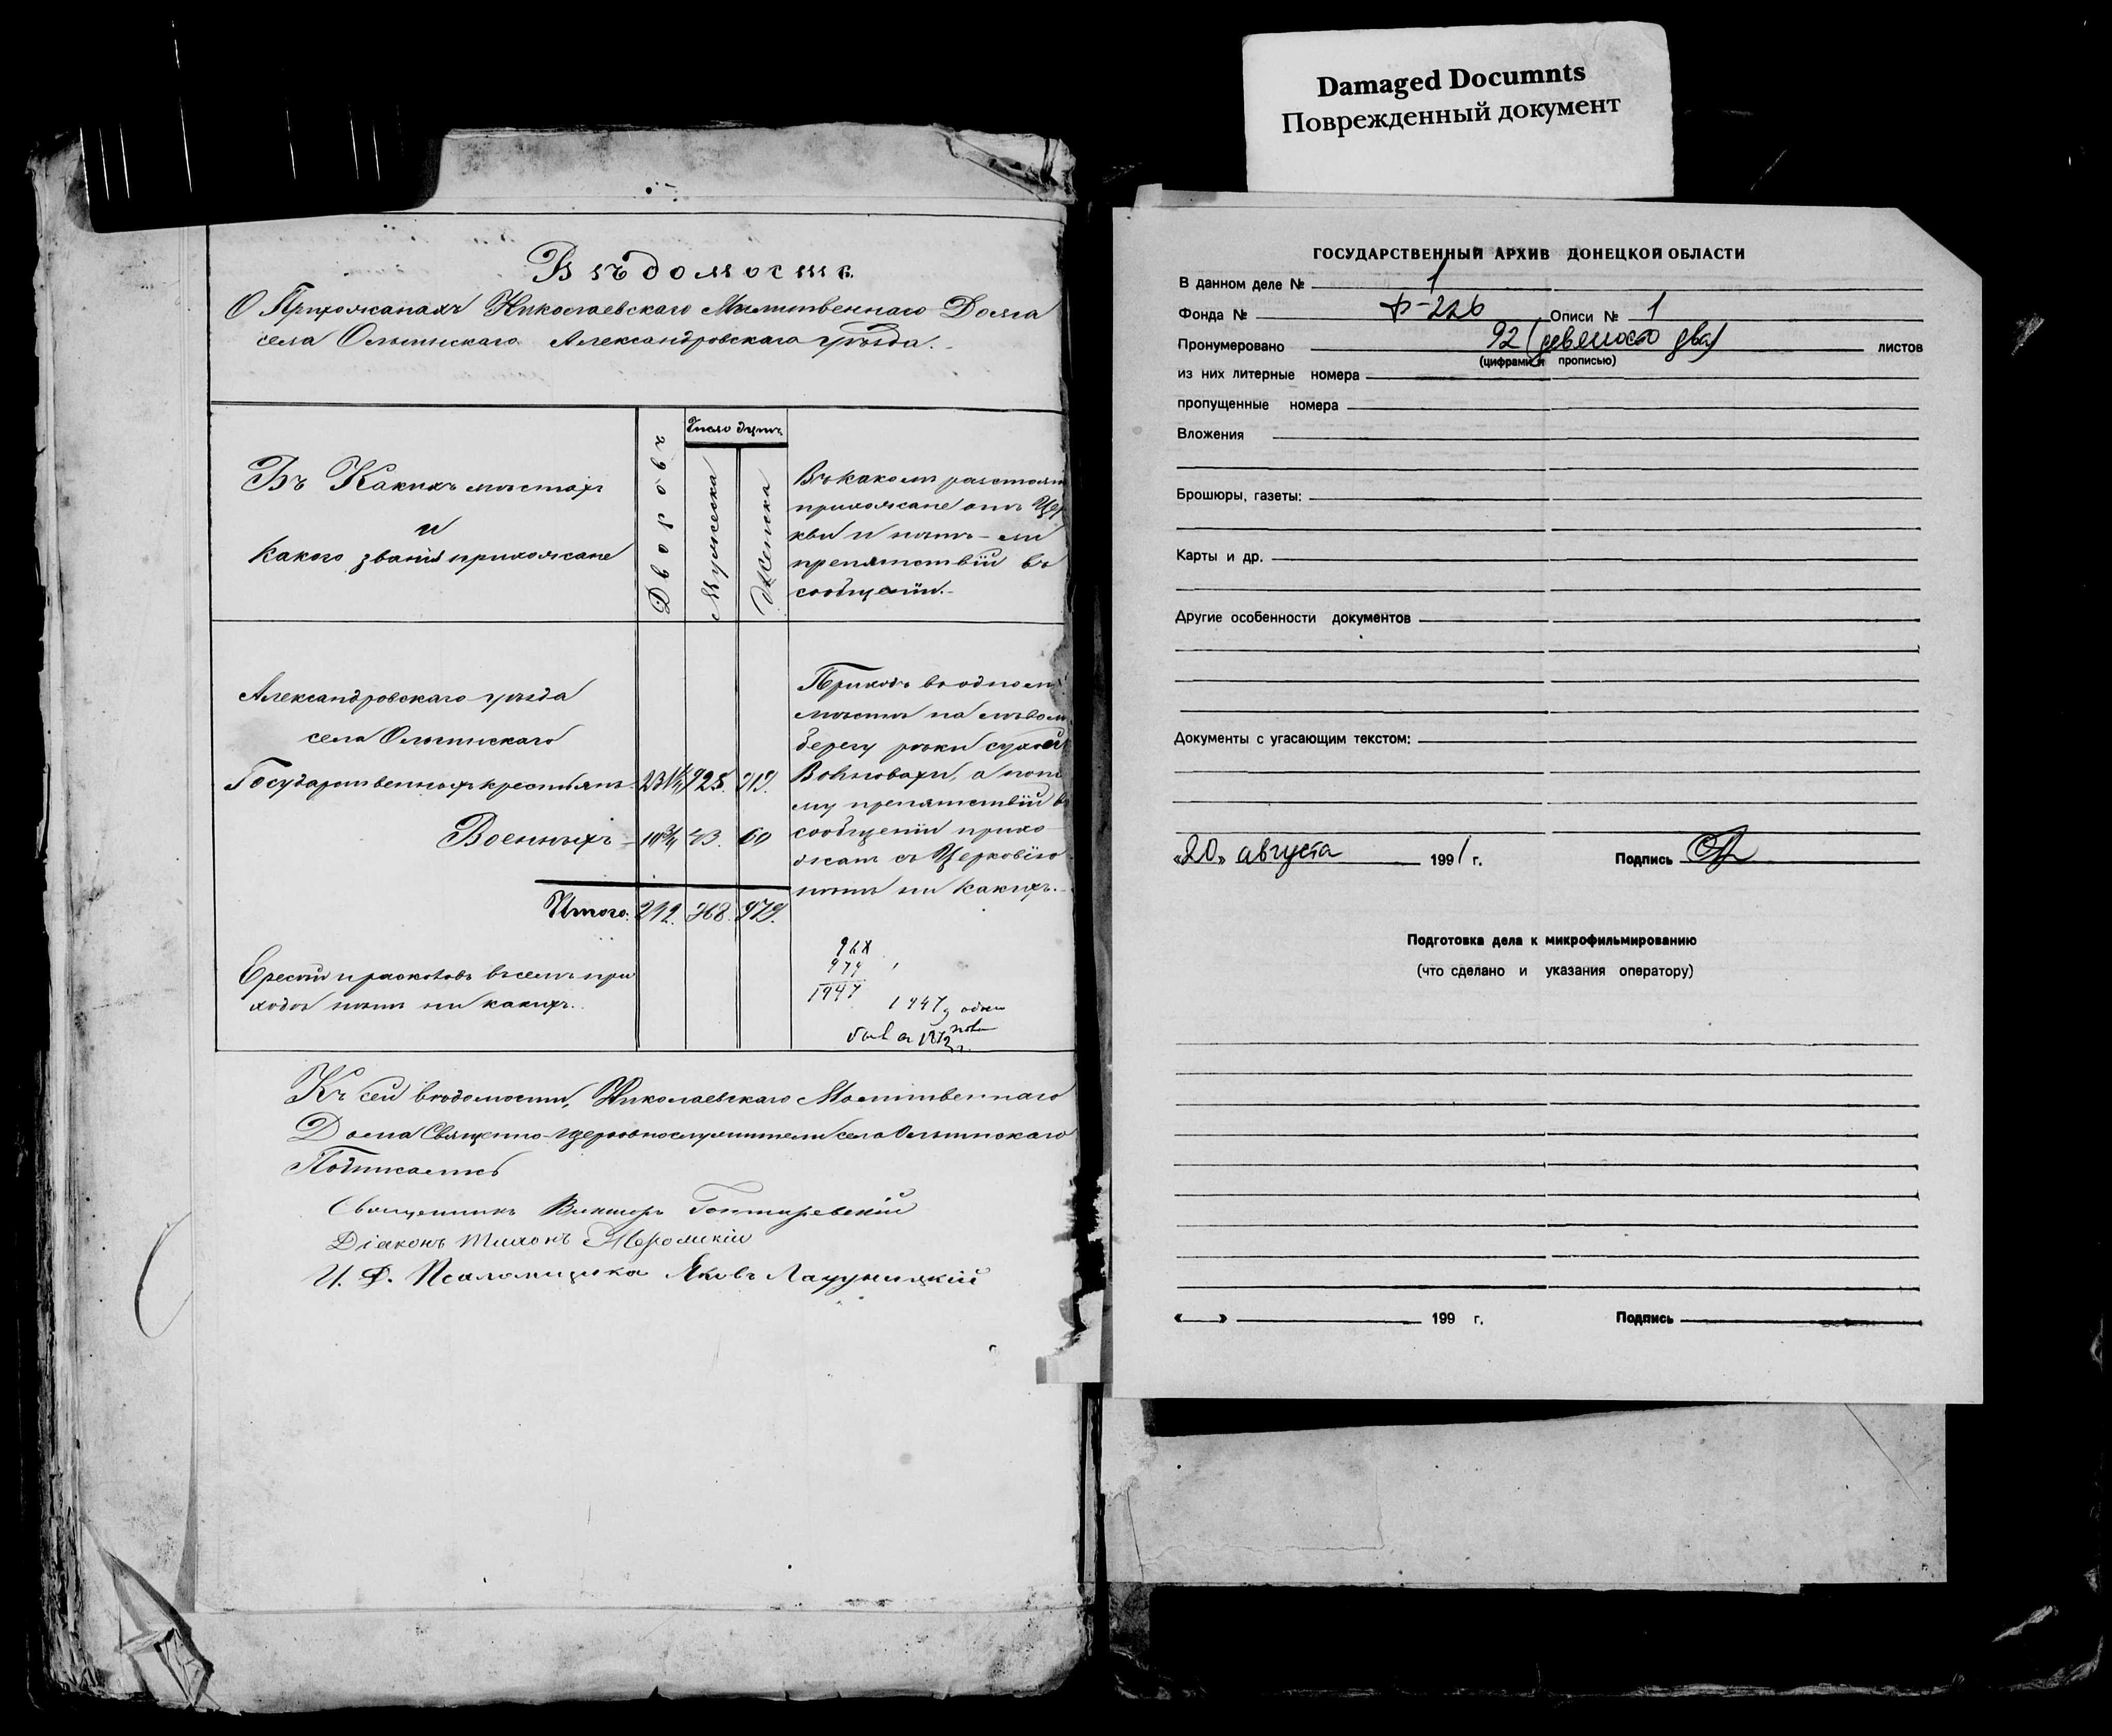 Вѣдомость
О Прихожанахъ Николаевскаго Молитвеннаго Дома
села Ольгинскаго Александровскаго уѣзда.
Въ Какихъ мѣстахъ
и
какого званія прихожане
Дворовъ
Число душъ
Мужеска
Женска
Въ какомъ разстояні
прихожане отъ Цер
кви и нѣтъ-ли
препятствій въ
сообщеніи.
Александровскаго уѣзда
села Ольгинскаго
Государственныхъ крестьянъ 231¼ 925. 919.
Военныхъ 10¾ 43. 60
Итого: 242. 968. 979.
Приходъ въ одномъ
мѣстѣ на лѣвом
берегу рѣки сухой
Волновахи, а пото
му препятствій въ
сообщеніи прихо
жанъ съ Церковію
нѣтъ ни какихъ.
Ересей и расколовъ въ семъ при
ходѣ нѣтъ ни какихъ.
968
979
1947
1947
Къ сей вѣдомости, Николаевскаго Молитвеннаго
Дома Священно-церковнослужители села Ольгинскаго
Подписались
Священникъ Викторъ Гонтаревскій
Діаконъ Тихонъ
И. Д. Псаломщика Яковъ
Damaged Documnts
Поврежденный документ
ГОСУДАРСТВЕННЫЙ АРХИВ ДОНЕЦКОЙ ОБЛАСТИ
В данном деле № 1
Фонда № Ф-226 Описи № 1
Пронумеровано 92 (девяносто два) листов
(цифрами и прописью)
из них литерные номера
пропущенные номера
Вложения
Брошюры, газеты:
Карты и др.
Другие особенности документов
Документы с угасающим текстом:
«20» августа 1991 г. Подпись
Подготовка дела к микрофильмированию
(что сделано и указания оператору)
« » 199 г. Подпись